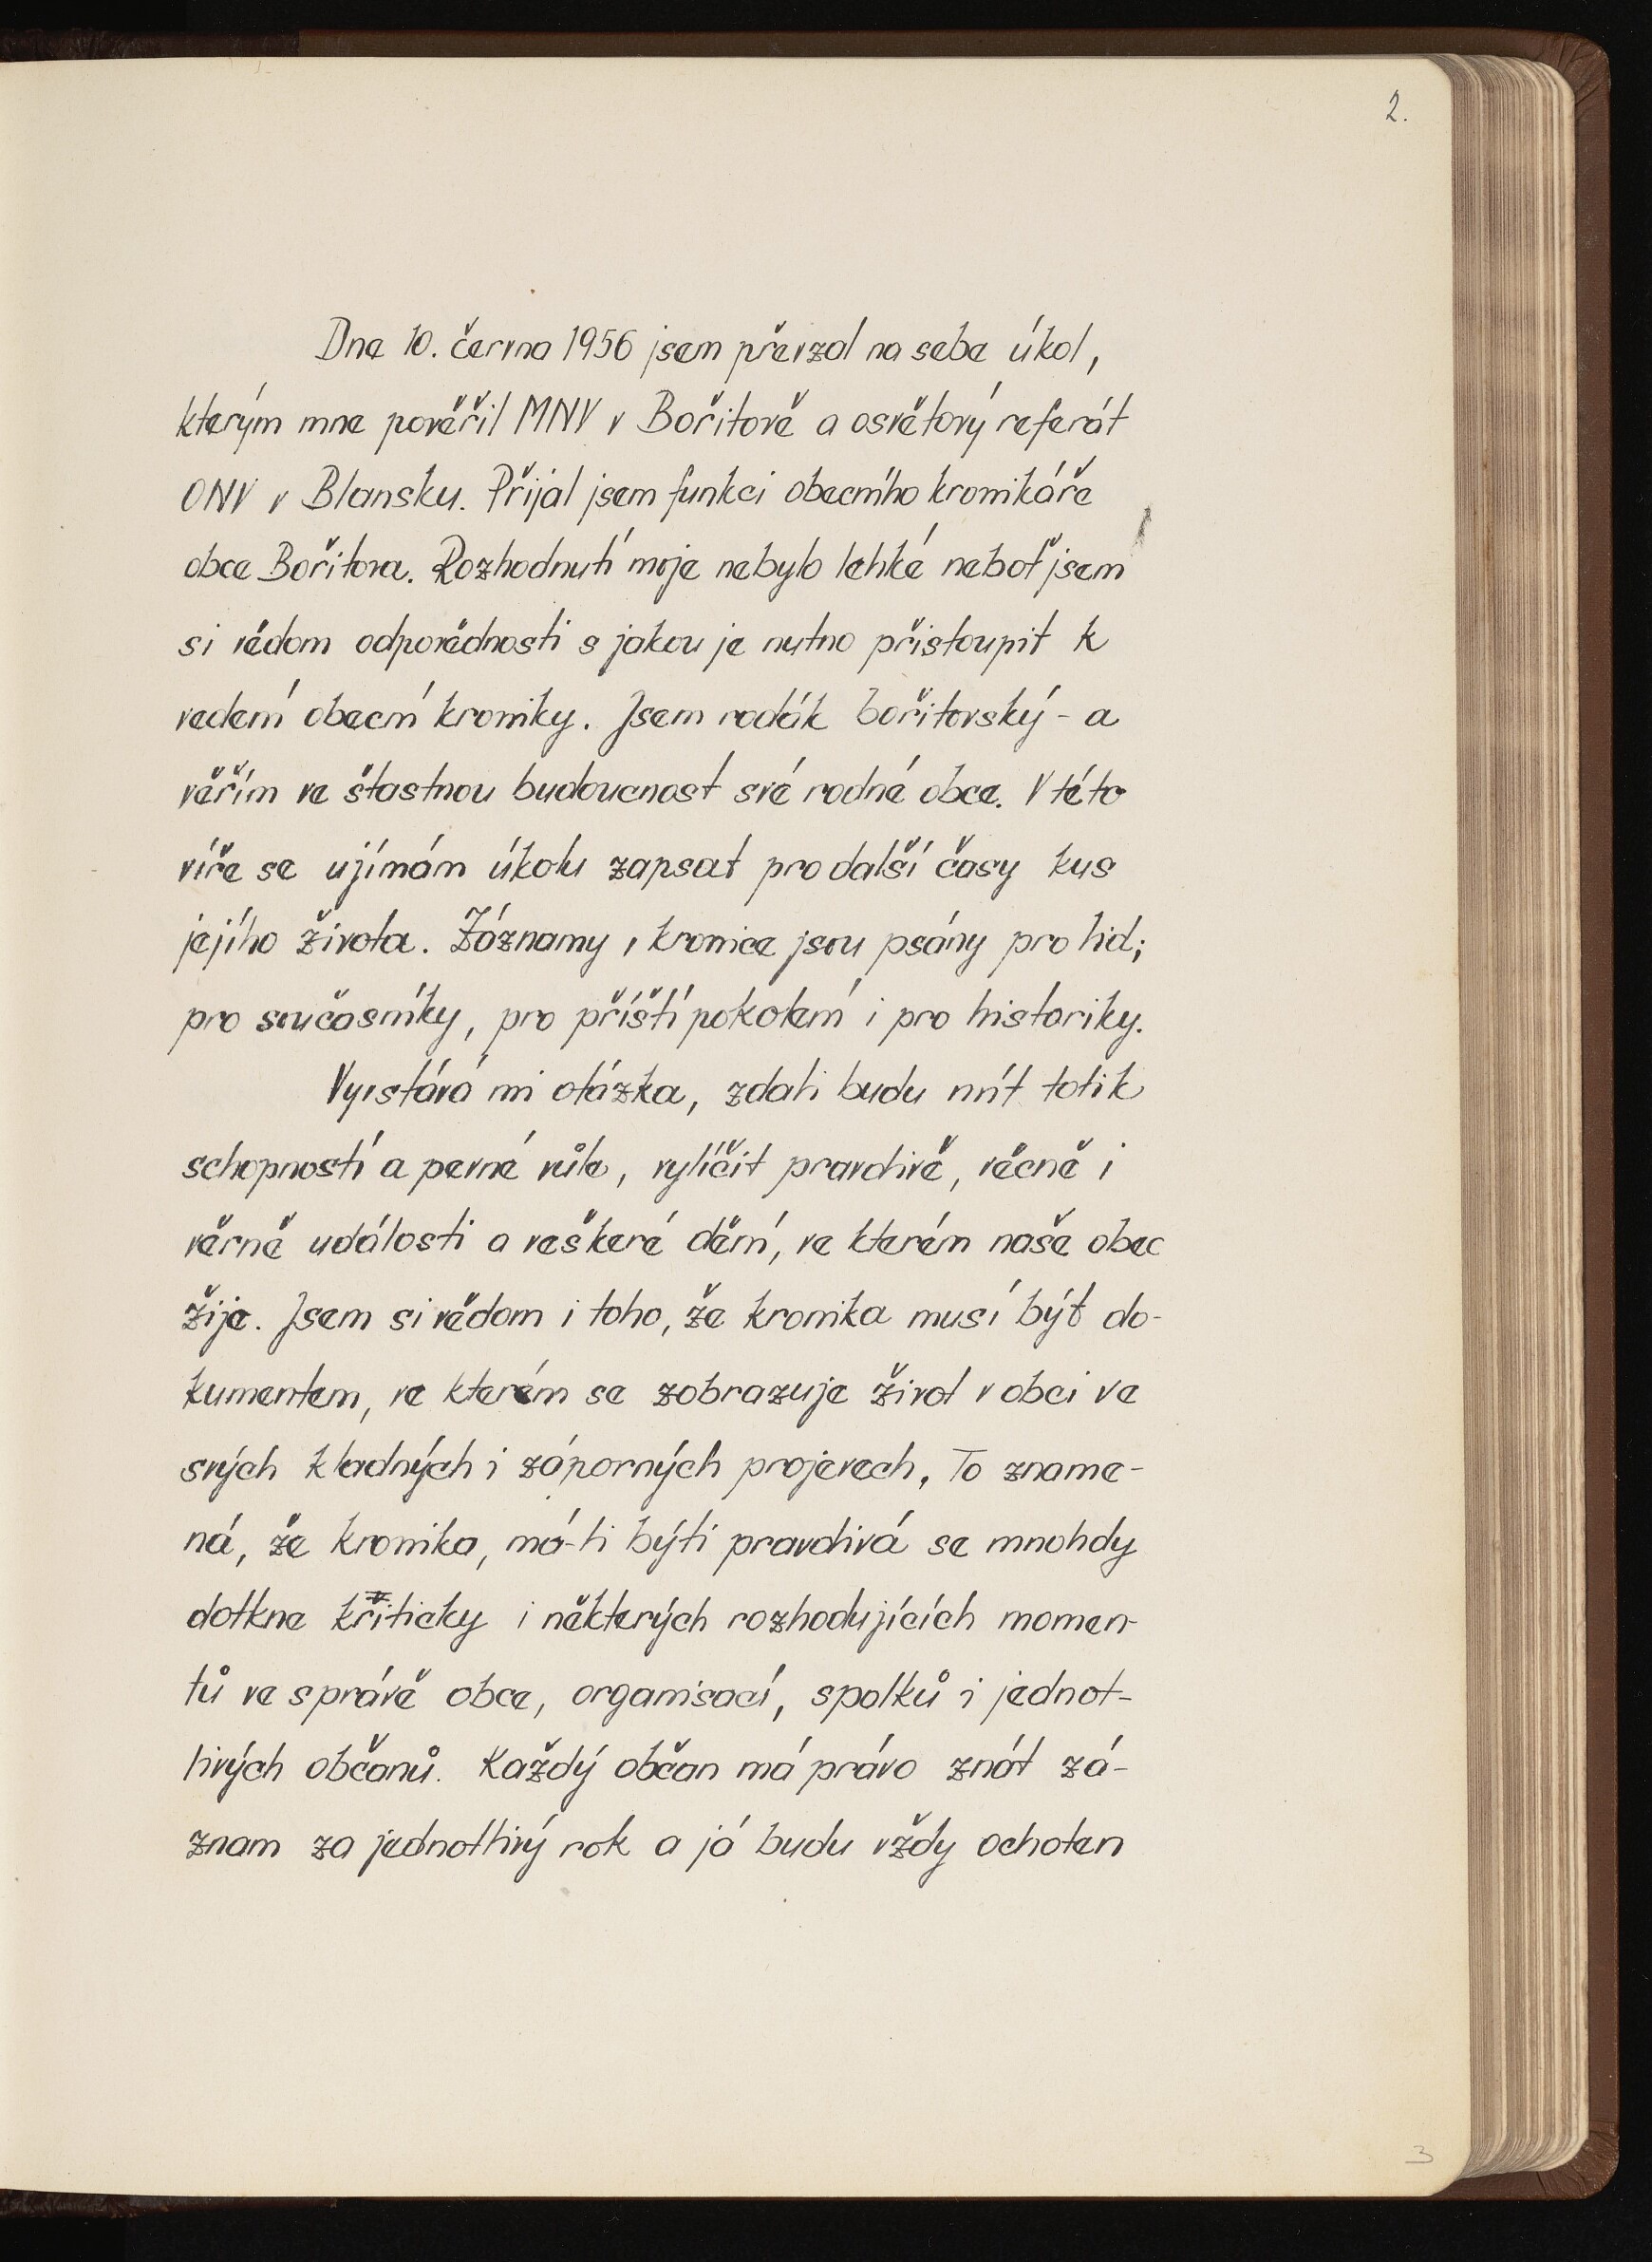 2.
Dne 10. června 1956 jsem převzal na sebe úkol,
kterým mne pověřil MNV v Bořitově a osvětový referát
ONV v Blansku. Přijal jsem funkci obecního kronikáře
obce Bořitova. Rozhodnutí moje nebylo lehké neboť jsem
si vědom odpovědnosti s jakou je nutno přistoupit k
vedení obecní kroniky. Jsem rodák bořitovský - a
věřím ve šťastnou budoucnost své rodné obce. V této
víře se ujímám úkolu zapsat pro další časy kus
jejího života. Záznamy v kronice jsou psány pro lid;
pro současníky, pro příští pokolení i pro historiky.
Vyvstává mi otázka, zdali budu mít tolik
schopností a pevné vůle, vylíčit pravdivě, věcně i
věrně události a veškeré dění, ve kterém naše obec
žije. Jsem si vědom i toho, že kronika musí být do-
kumentem, ve kterém se zobrazuje život v obci ve
svých kladných i záporných projevech. To zname-
ná, že kronika, má-li býti pravdivá se mnohdy
dotkne kriticky i některých rozhodujících momen-
tů ve správě obce, organisací, spolků i jednot-
livých občanů. Každý občan má právo znát zá-
znam za jednotlivý rok a já budu vždy ochoten
3